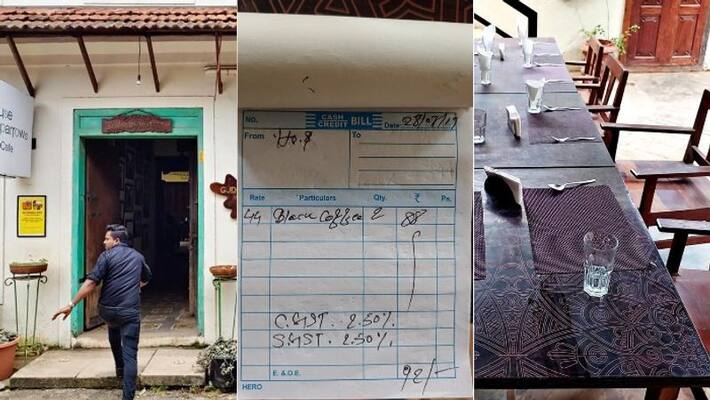 parrows
Cafe
GJD
NO.
CASH
CREDIT BILL
Date 28/08/19
From
To
Rate Particulars Qty. ₹ Ps.
44 Black Coffee 2 88
C.GST. 2.50%.
SGST. 2.50%.
E. & O.E. 92/-
HERO